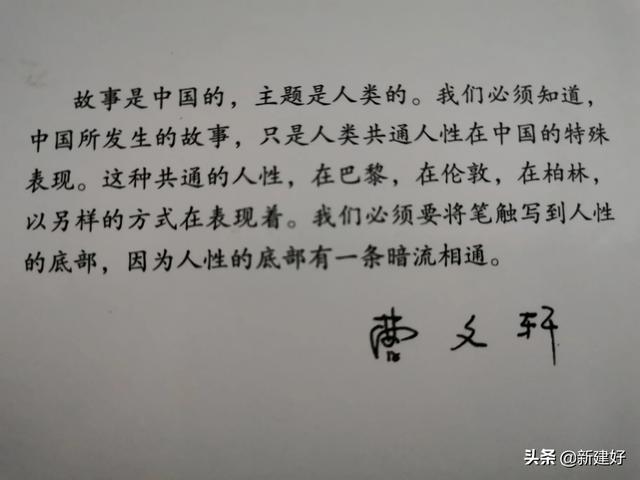 故事是中国的，主题是人类的。我们必须知道，
中国所发生的故事，只是人类共通人性在中国的特殊
表现。这种共通的人性，在巴黎，在伦敦，在柏林，
以另样的方式在表现着。我们必须要将笔触写到人性
的底部，因为人性的底部有一条暗流相通。
曹文轩
头条 @新建好